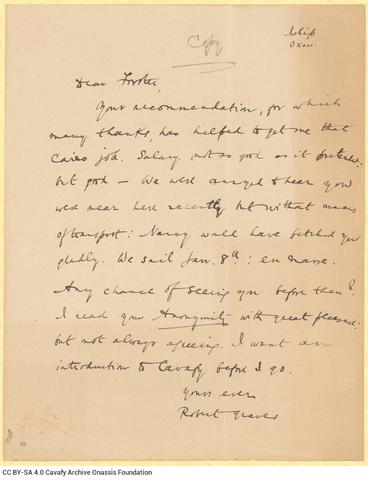 Copy
Islip
Oxon.
Dear Forster,
Your recommendation, for which
many thanks, has helped to get me that
Cairo job. Salary not as good as it pretended:
but good – We were annoyed to hear you
were near here recently but without means
of transport: Nancy would have fetched you
gladly. We sail Jan. 8th: en masse.
Any chance of seeing you before then?
I read your Anonymity with great pleasure:
but not always agreeing. I want an
introduction to Cavafy before I go.
Yours ever
Robert Graves
CC BY-SA 4.0 Cavafy Archive Onassis Foundation